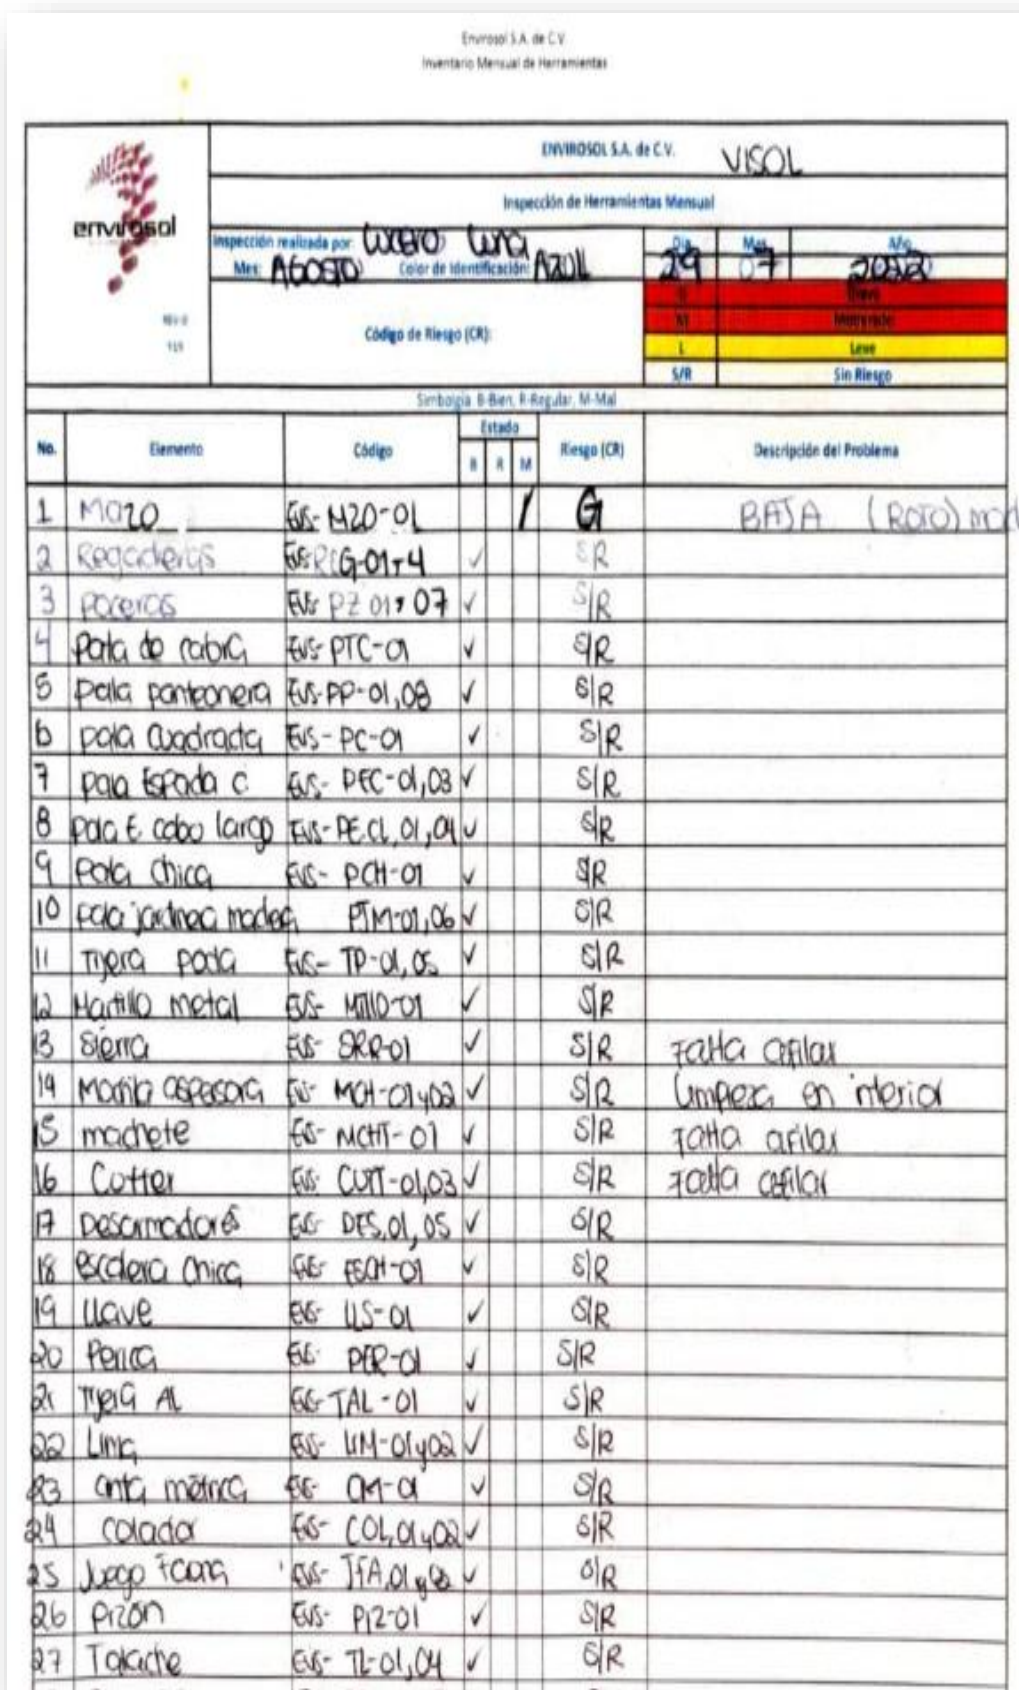 Envirosol S.A. de C.V.
Inventario Mensual de Herramientas
ENVIROSOL S.A. de C.V. VISOL
Inspección de Herramientas Mensual
envirosol
Inspección realizada por: LUCERO Luna Día Mes Año
Mes: AGOSTO Color de Identificación: AZUL 29 07 2022
Código de Riesgo (CR):
G Grave
M Moderado
L Leve
S/R Sin Riesgo
Simbolgía B-Bien, R-Regular, M-Mal
No. Elemento Código Estado Riesgo (CR) Descripción del Problema
B R M
1 Mazo EVS- MZO-01 / G BAJA (ROTO)
2 Regaderas EVS- REG-01 4 ✓ S/R
3 poceras EVS- PZ 01 07 ✓ S/R
4 Pata de cabra EVS- PTC-01 ✓ S/R
5 pala panteonera EVS-PP-01,08 ✓ S/R
6 pala cuadrada EVS- PC-01 ✓ S/R
7 pala Espada c. EVS- PEC-01,03 ✓ S/R
8 pala E cabo largo EVS- PE.CL,01,04 ✓ S/R
9 Pala chica EVS- PCH-01 ✓ S/R
10 pala jardinea madea PJM-01,06 ✓ S/R
11 Tijera poda EVS- TP-01,05 ✓ S/R
12 Martillo metal EVS- MTllO-01 ✓ S/R
13 Sierra EVS- SRR-01 ✓ S/R Falta afilar
14 Mochila aspersora EVS- MCH-01y02 ✓ S/R Limpieza en interior
15 machete EVS- MCHT-01 ✓ S/R Falta afilar
16 Cutter EVS- CUTT-01,03 ✓ S/R Falta afilar
17 Desarmadores EVS- DES,01,05 ✓ S/R
18 escalera chica EVS- ESCH-01 ✓ S/R
19 llave EVS- LLS-01 ✓ S/R
20 Perica EVS- PER-01 ✓ S/R
21 Tijera AL EVS-TAL-01 ✓ S/R
22 Lima EVS- LIM-01y02 ✓ S/R
23 cinta métrica EVS- CM-01 ✓ S/R
24 colador EVS- COL,01y02 ✓ S/R
25 Juego EVS- JFA,01 y 02 ✓ S/R
26 Pizón EVS- PIZ-01 ✓ S/R
27 Talache EVS- TL-01,04 ✓ S/R